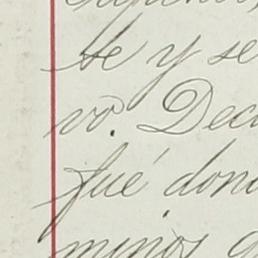 be y se
vo. Dec
fué don
minos